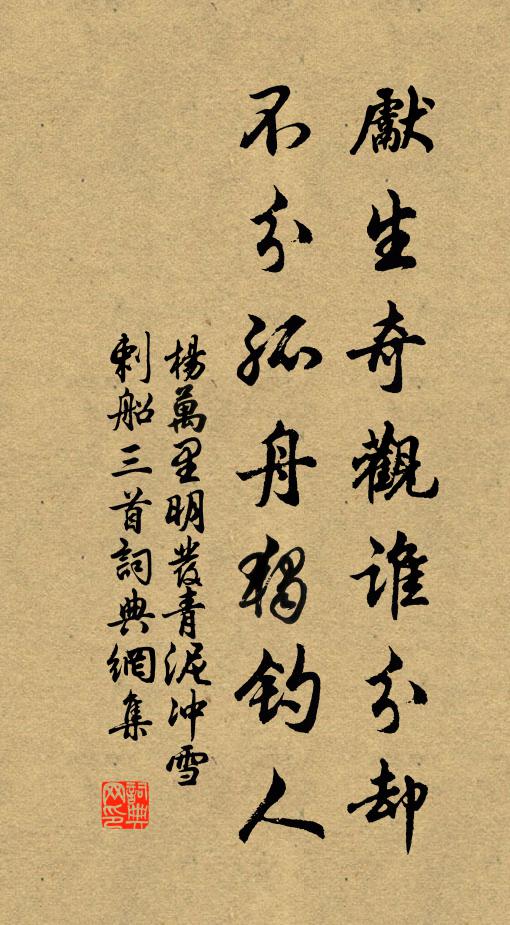 獻生奇觀誰分却
不分孤舟獨釣人
楊萬里明發青泥冲雪
刺船三首詞典網集
詞典网印